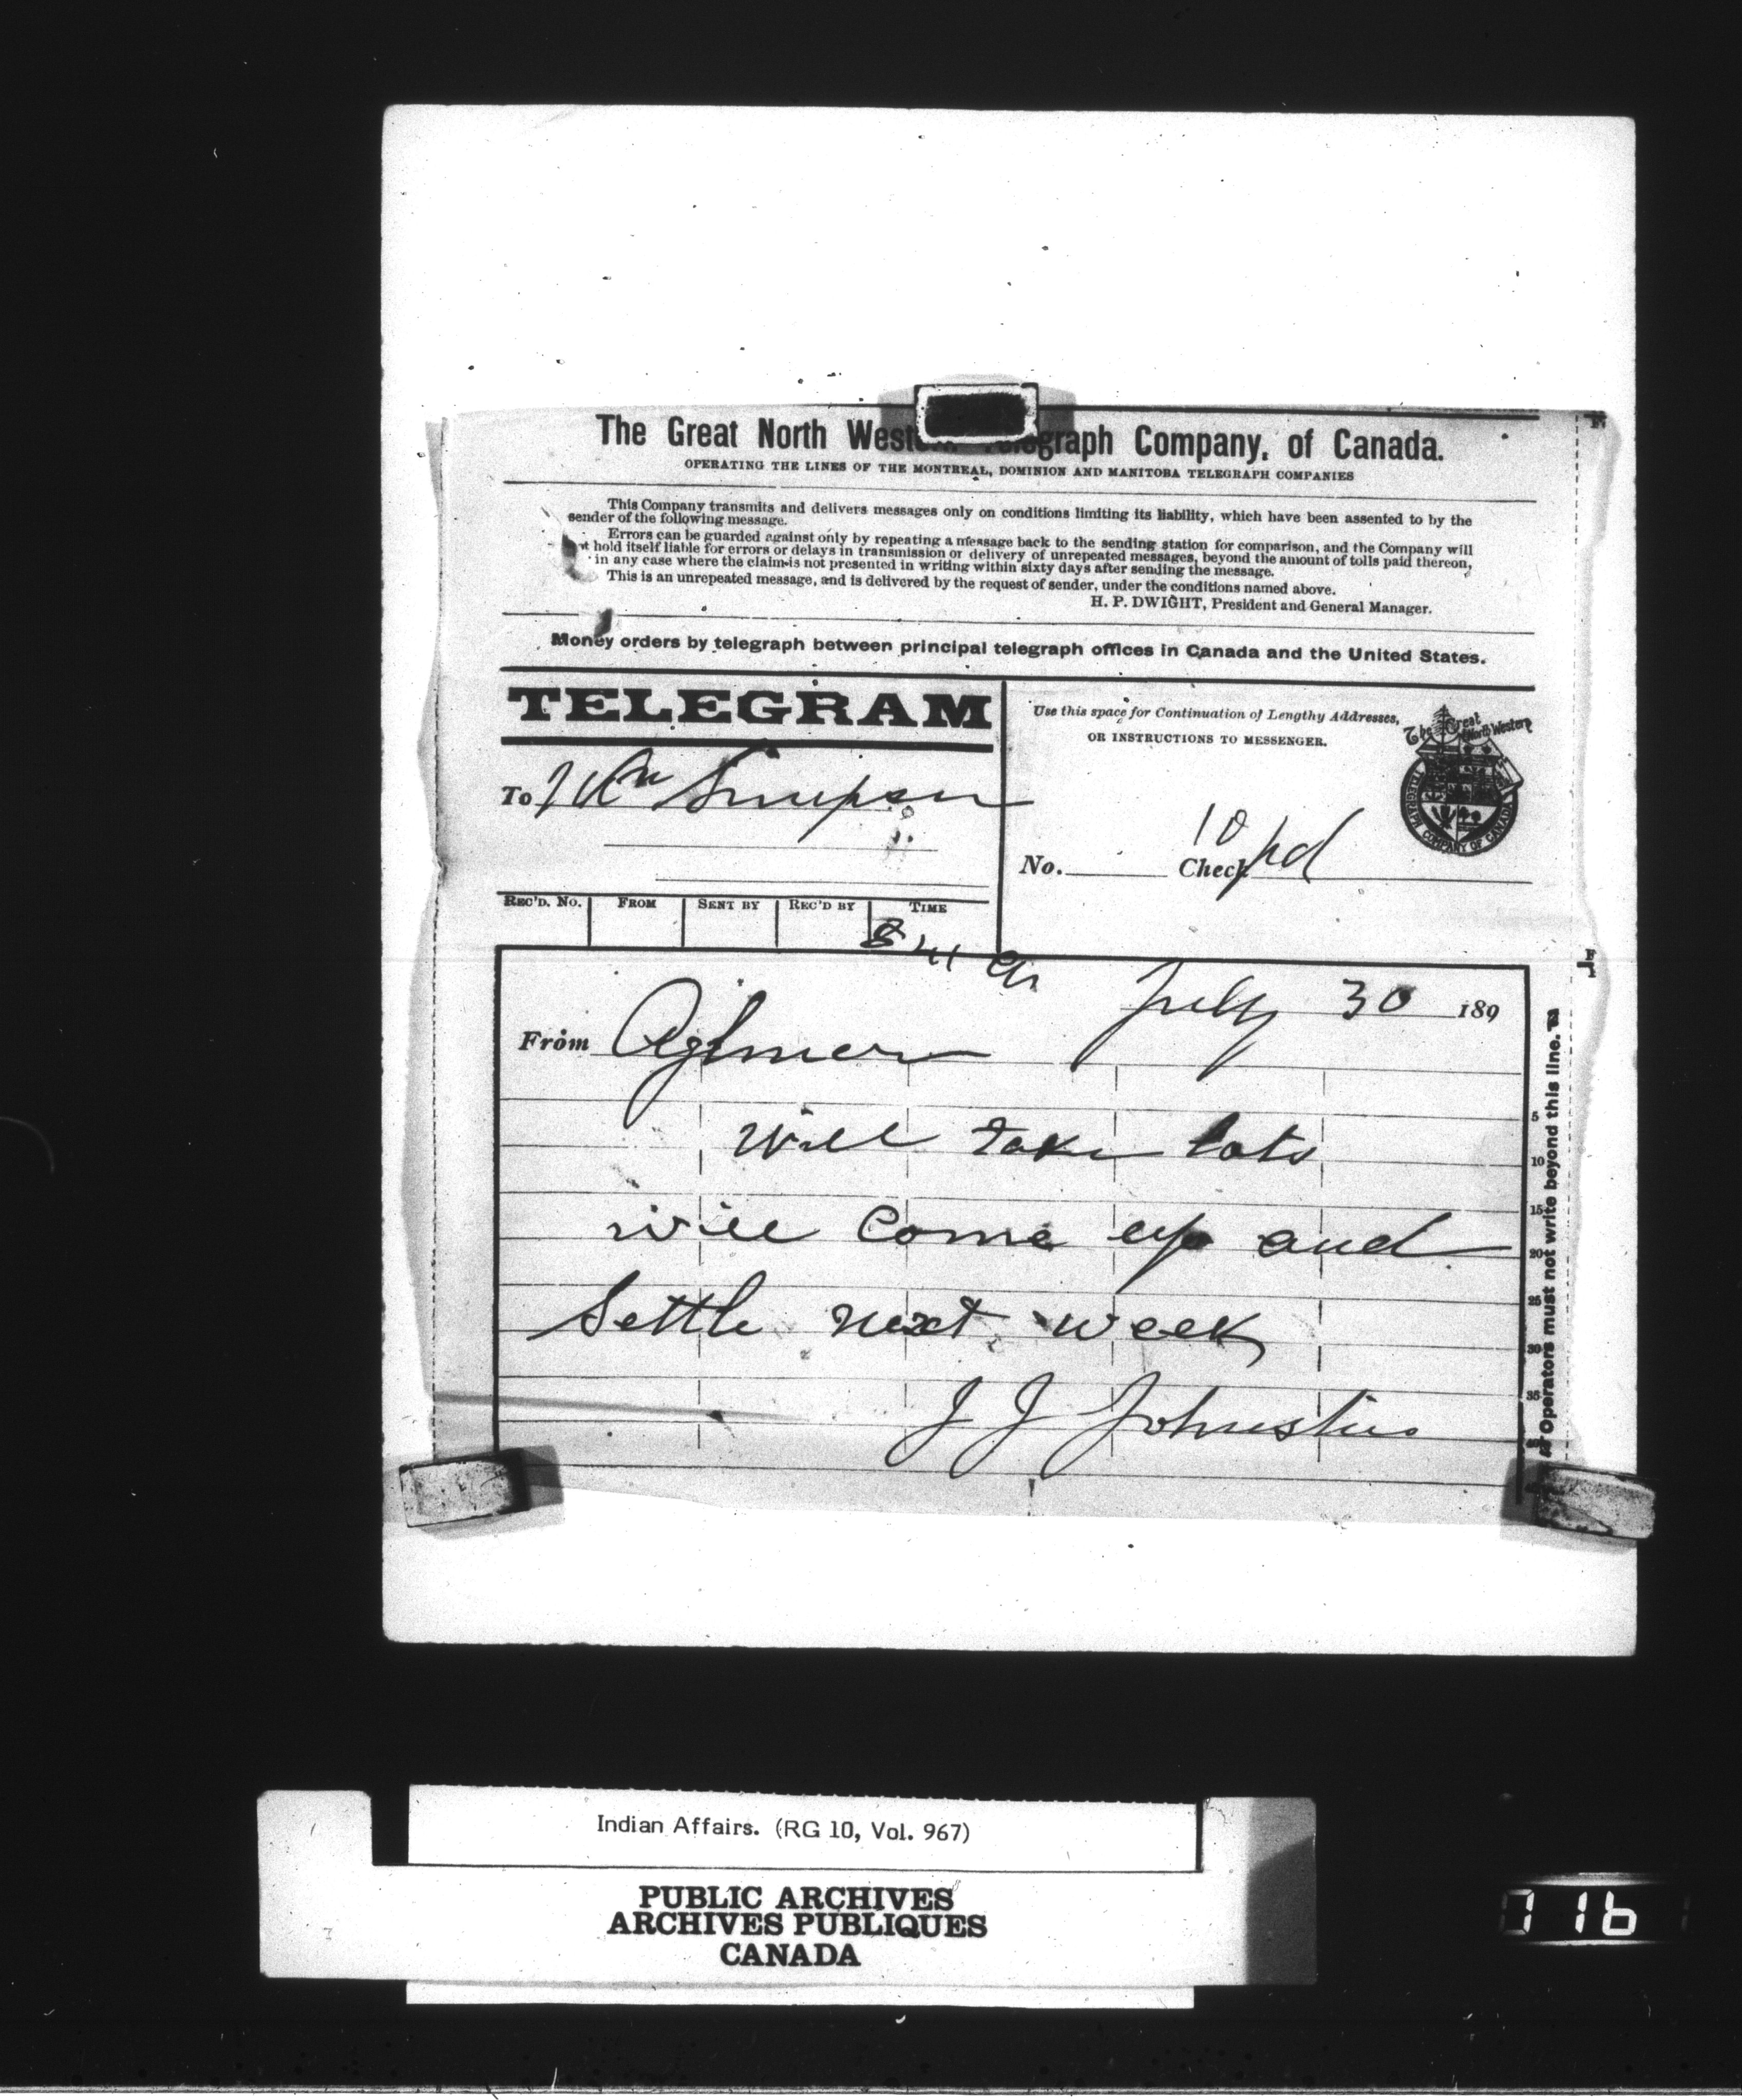 The Great North Western Telegraph Company, of Canada.
OPERATING THE LINES OF THE MONTREAL, DOMINION AND MANITOBA TELEGRAPH COMPANIES
This Company transmits and delivers messages only on conditions limiting its liability, which have been assented to by the
sender of the following message.
Errors can be guarded against only by repeating a message back to the sending station for comparison, and the Company will
hold itself liable for errors or delays in transmission or delivery of unrepeated messages, beyond the amount of tolls paid thereon,
in any case where the claim is not presented in writing within sixty days after sending the message.
This is an unrepeated message, and is delivered by the request of sender, under the conditions named above.
H. P. DWIGHT, President and General Manager.
Money orders by telegraph between principal telegraph offices in Canada and the United States.
TELEGRAM
To Wm Simpson
Use this space for Continuation of Lengthy Addresses,
OR INSTRUCTIONS TO MESSENGER.
The Great North Western
TELEGRAPH COMPANY OF CANADA
No. Check 10 pd
REC'D. NO. FROM SENT BY REC'D BY TIME
July 30 189
From Aylmer
will take lots
will come up and
settle next week
J J Johnston
5
10
15
20
25
30
35
Operators must not write beyond this line.
Indian Affairs. (RG 10, Vol. 967)
PUBLIC ARCHIVES
ARCHIVES PUBLIQUES
CANADA